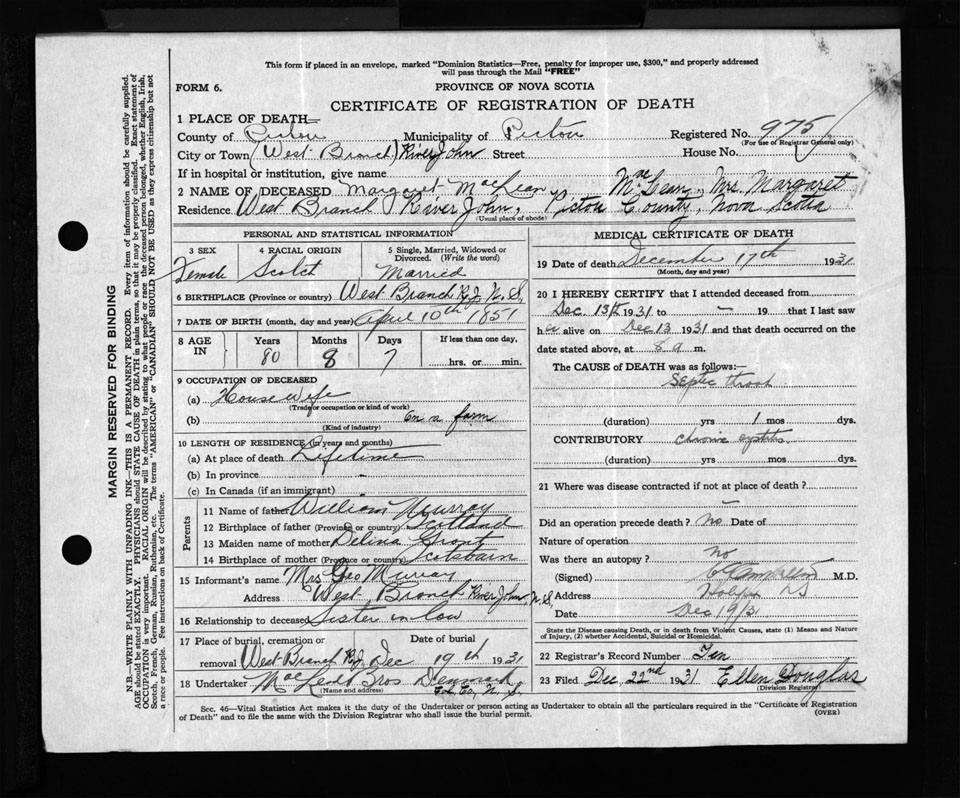 This form if placed in an envelope, marked "Dominion Statistics—Free, penalty for improper use, $300," and properly addressed
will pass through the Mail "FREE"
FORM 6.
PROVINCE OF NOVA SCOTIA
CERTIFICATE OF REGISTRATION OF DEATH
1 PLACE OF DEATH—
County of Pictou Municipality of Pictou Registered No. 975
(For use of Registrar General only)
City or Town (West Branch) River John Street House No.
If in hospital or institution, give name
2 NAME OF DECEASED Margaret MacLean McLean, Mrs. Margaret
Residence West Branch River John, Pictou County, Nova Scotia
(Usual place of abode)
PERSONAL AND STATISTICAL INFORMATION
3 SEX 4 RACIAL ORIGIN 5 Single, Married, Widowed or Divorced. (Write the word)
Female Scotch Married
6 BIRTHPLACE (Province or country) West Branch R.J. N.S.
7 DATE OF BIRTH (month, day and year) April 10th 1851
8 AGE IN Years Months Days If less than one day,
80 8 7 hrs. or min.
9 OCCUPATION OF DECEASED
(a) House wife
(Trade or occupation or kind of work)
(b) on a farm
(Kind of industry)
10 LENGTH OF RESIDENCE (in years and months)
(a) At place of death Lifetime
(b) In province -
(c) In Canada (if an immigrant)
Parents
11 Name of father William Murray
12 Birthplace of father (Province or country) Scotland
13 Maiden name of mother Grant
14 Birthplace of mother (Province or country) Scotsburn
15 Informant's name Mrs Geo Murray
Address West Branch River John, N.S.
16 Relationship to deceased Sister in law
17 Place of burial, cremation or removal Date of burial
West Branch R.J. Dec 19th 1931
18 Undertaker Bros Denmark
(Name and address) Co, N.S.
MEDICAL CERTIFICATE OF DEATH
19 Date of death December 17th 1931
(Month, day and year)
20 I HEREBY CERTIFY that I attended deceased from
Dec 13th 1931 to — 19 that I last saw
her alive on Dec 13 1931 and that death occurred on the
date stated above, at 8 a m.
The CAUSE of DEATH was as follows:—
Septic throat
(duration) yrs 1 mos dys.
CONTRIBUTORY chronic cystitis
(duration) yrs mos dys.
21 Where was disease contracted if not at place of death?
Did an operation precede death? no Date of
Nature of operation
Was there an autopsy? no
(Signed) M.D.
Address
Date Dec 19/31
State the Disease causing Death, or in death from Violent Causes, state (1) Means and Nature
of Injury, (2) whether Accidental, Suicidal or Homicidal.
22 Registrar's Record Number Ten
23 Filed Dec 22nd 1931 Ellen Douglas
(Division Registrar)
Sec. 46—Vital Statistics Act makes it the duty of the Undertaker or person acting as Undertaker to obtain all the particulars required in the "Certificate of Registration
of Death" and to file the same with the Division Registrar who shall issue the burial permit.
(OVER)
MARGIN RESERVED FOR BINDING
N.B.—WRITE PLAINLY WITH UNFADING INK—THIS IS A PERMANENT RECORD. Every item of information should be carefully supplied.
AGE should be stated EXACTLY. PHYSICIANS should STATE CAUSE OF DEATH in plain terms, so that it may be properly classified. Exact statement of
OCCUPATION is very important. RACIAL ORIGIN will be described by stating to what people or race the deceased person belonged, whether English, Irish,
Scotch, French, German, Russian, Ruthenian, etc. The terms "AMERICAN" or "CANADIAN" SHOULD NOT BE USED as they express citizenship but not
a race or people. Fee instructions on back of Certificate.